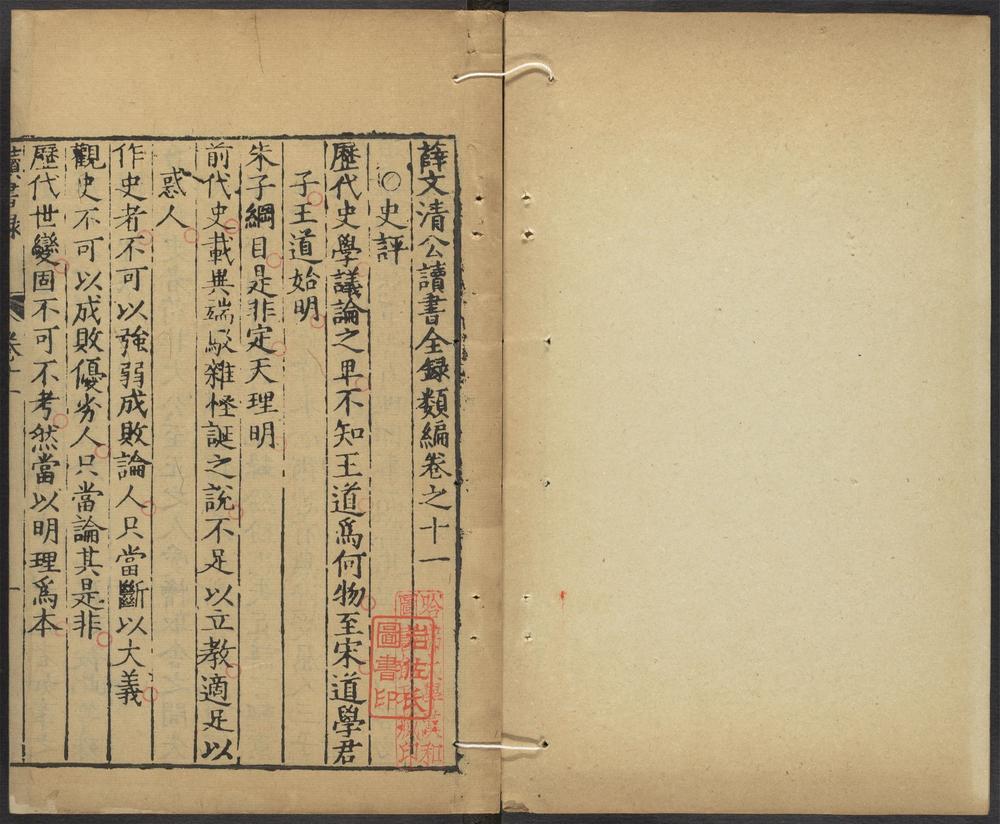 薛文清公讀書全録類編卷之十一
○史評
歷代史學議論之卑不知王道爲何物至宋道學君
子王道始明
朱子綱目是非定天理明
前代史載異端駁雜怪誕之說不足以立教適足以
惑人
作史者不可以強弱成敗論人只當斷以大義
觀史不可以成敗優劣人只當論其是非
歷代世變固不可不考然當以明理爲本
讀書録
卷十一
一
岩佐氏
圖書印